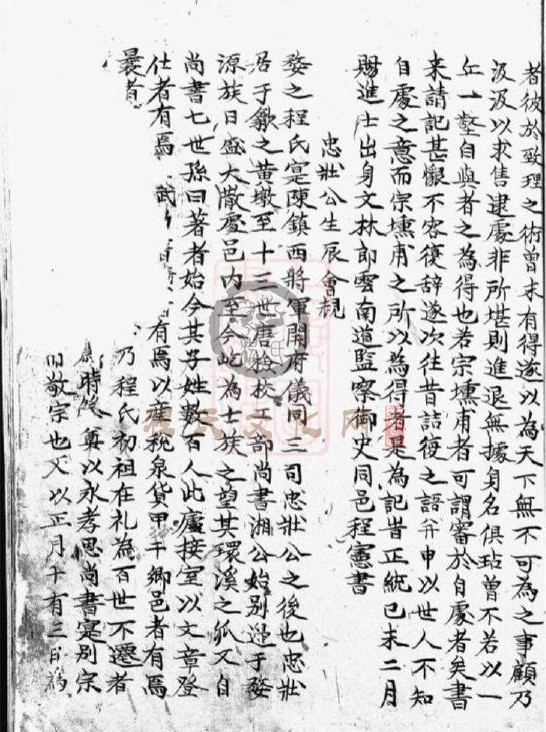 者彼於致理之術曾未有得遂以為天下無不可為之事顧乃
汲汲以求售逮處非所堪則進退無據身名俱玷曾不若以一
丘一壑自與者之為得也若宗壎甫者可謂審於自處者矣書
來請記甚懇不容復辞遂次往昔詰復之語并申以世人不知
自處之意而宗壎甫之所以為得者是為記旹正統己未二月
賜進士出身文林郎雲南道監察御史同邑程憲書
忠壯公生辰會規
婺之程氏寔陳鎮西將軍開府儀同三司忠壯公之後也忠壯
居于歙之黃墩至十三世唐檢校工部尚書湘公始别遷于婺
源族日盛大散處邑内至今屹為士族之望其環溪之派又自
尚書七世孫曰著者始今其子姓數百人此廬接室以文章登
仕者有焉 武 有焉以産税泉貨甲于鄉邑者有焉
乃程氏初祖在礼為百世不遷者
時 奠以永孝思尚書寔别宗
敬宗也又以正月十有三日為